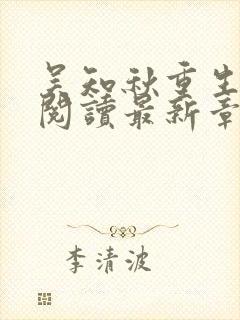 吴知秋重生
閱讀最新章
李清波